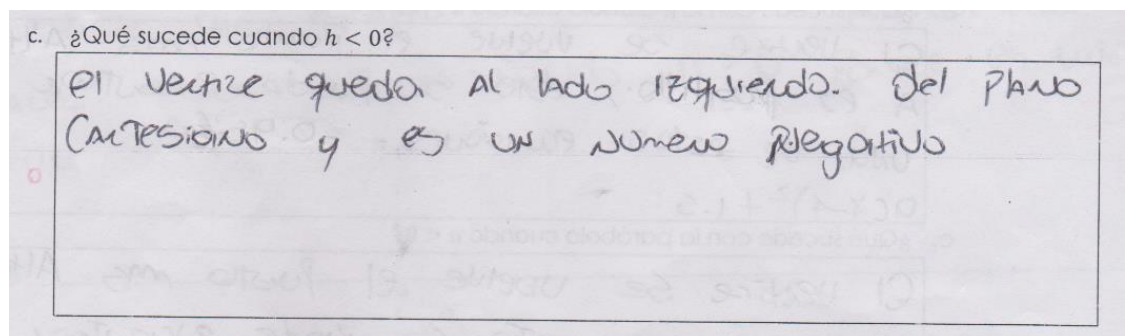 c. ¿Qué sucede cuando h < 0?
el vertize queda Al lado izquierdo. Del PlANO
CARTESiaNO y es UN Número Negativo